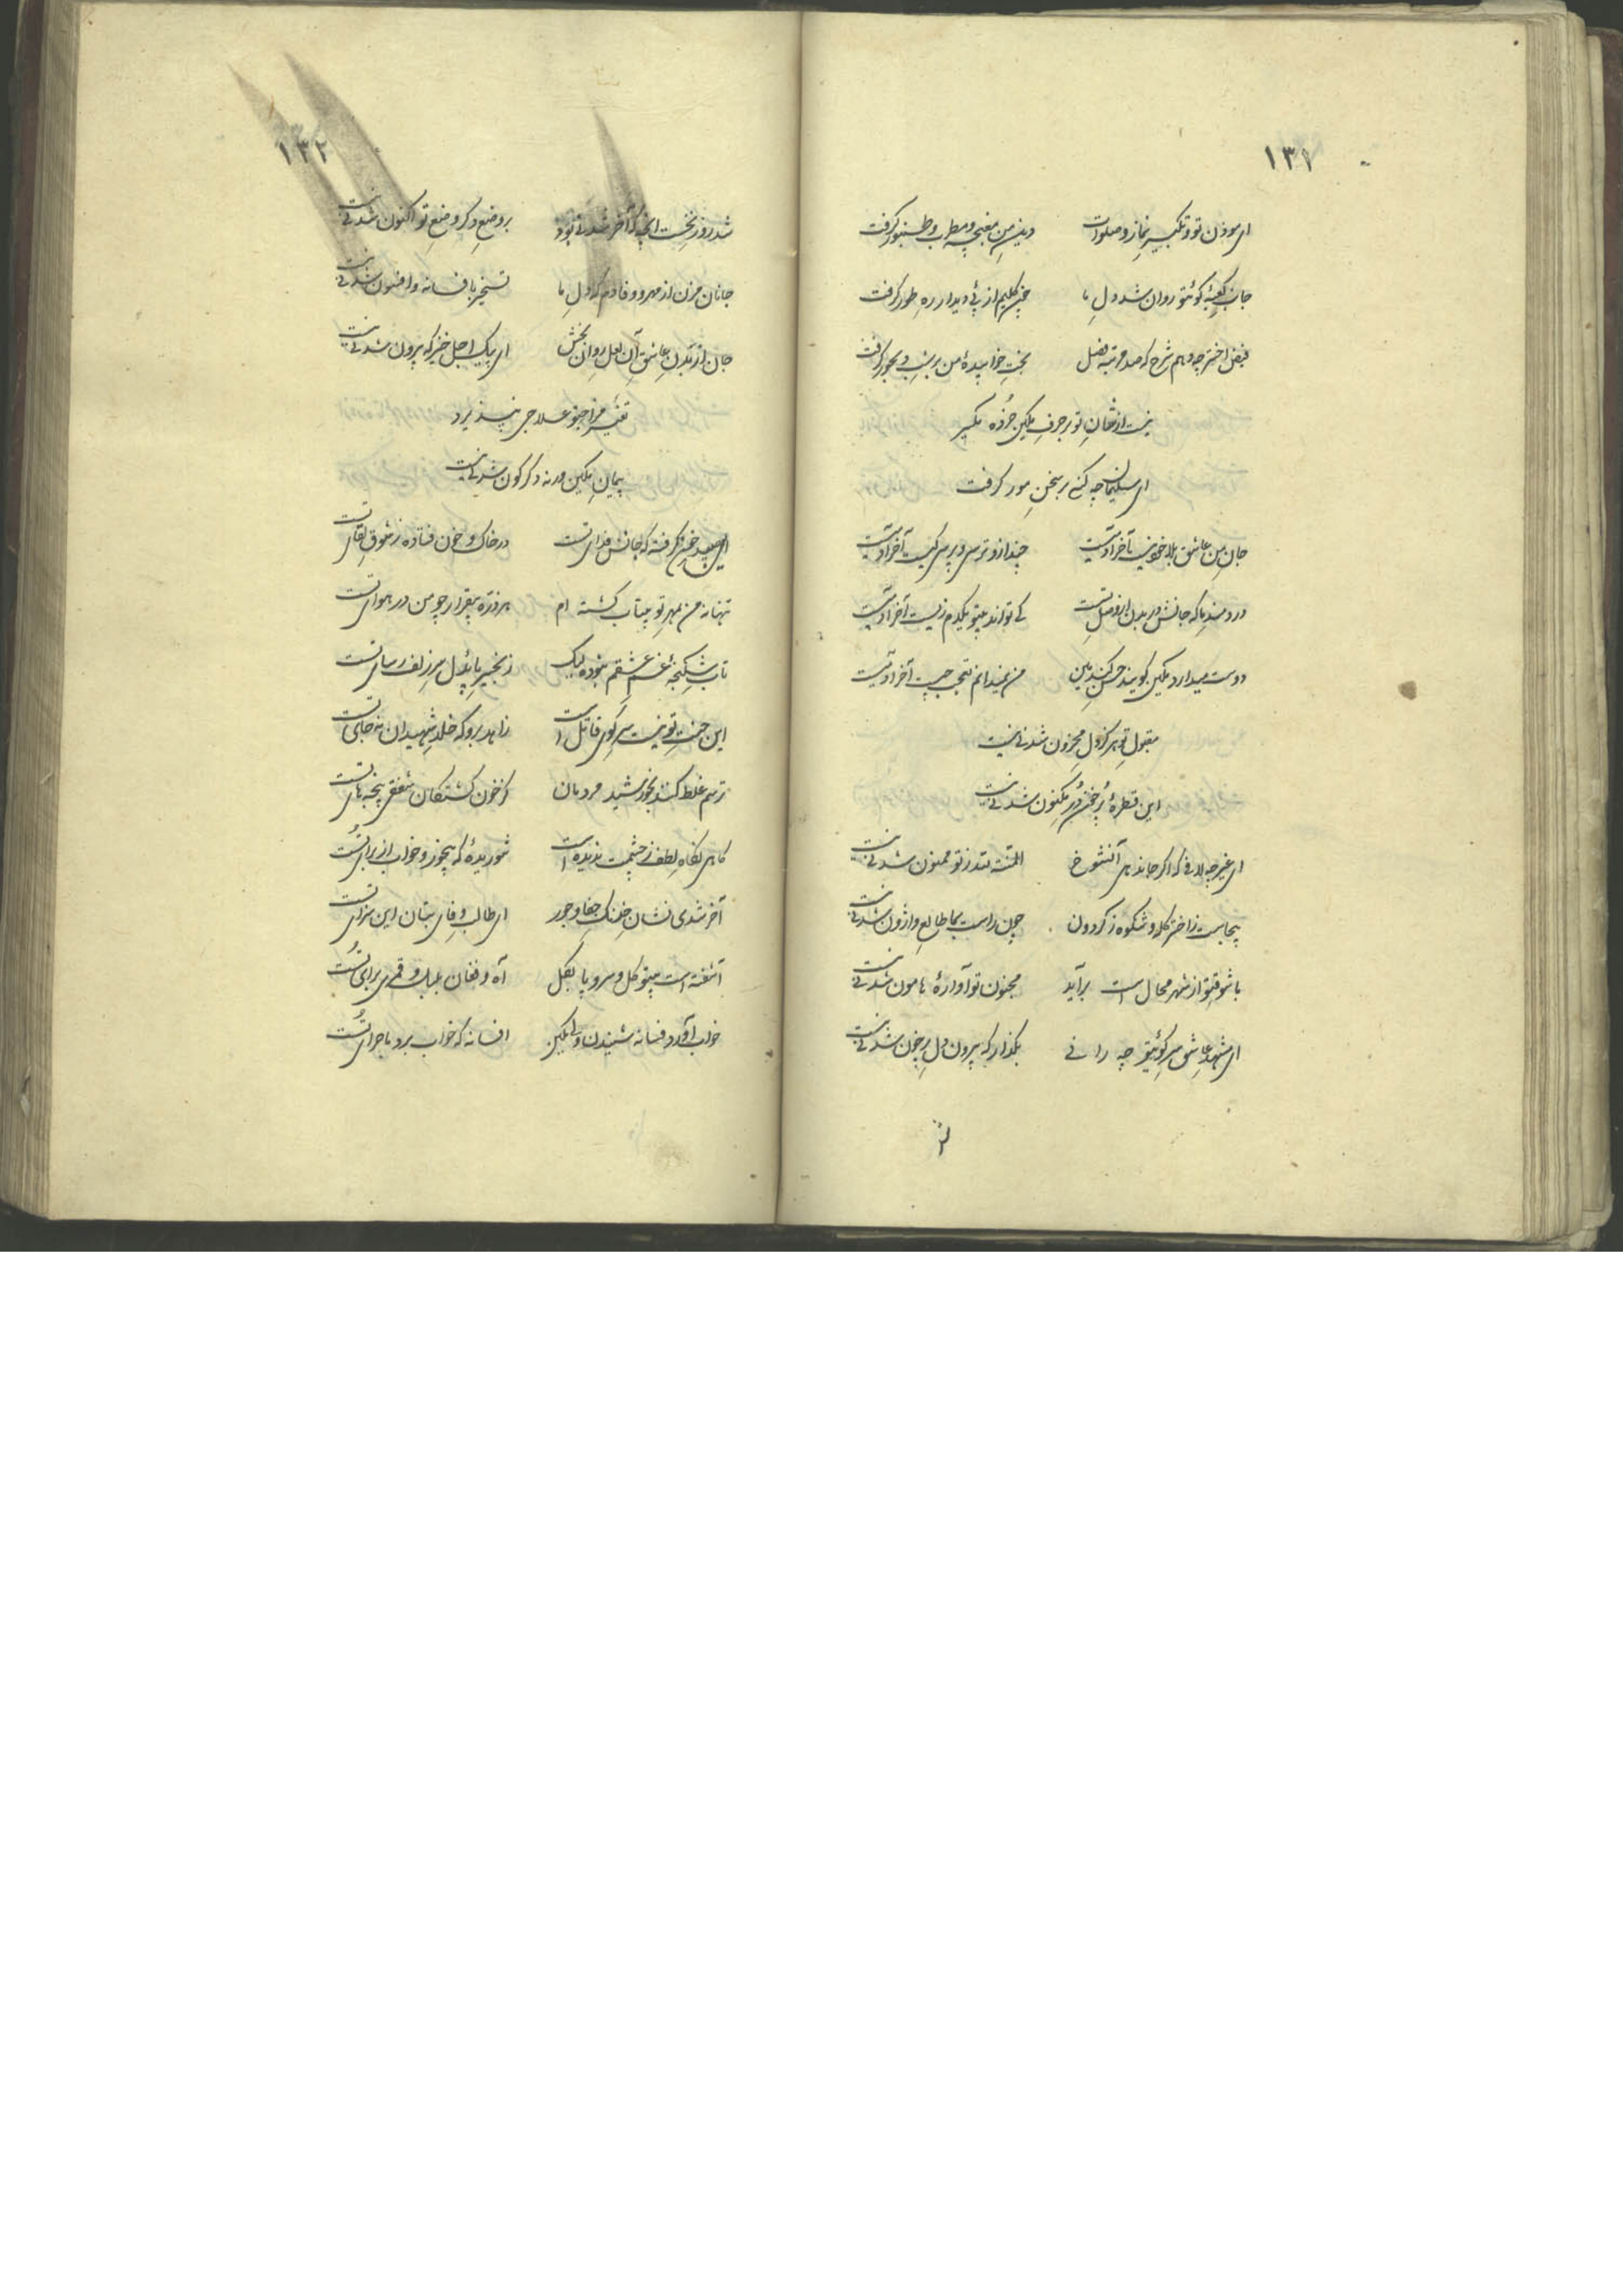 ۱۳۱
ای موذن تو و تکبیر نماز و صلوات دین من مغبچه و مطرب و طنبور گرفت
جانب کعبهٔ کوئتو روان شد دل ما چون کلیم از پئ دیدار ره طور گرفت
فیض اختر چه دهم شرح که صد مرتبه فضل بخت خوابیدهٔ من بر شب دیجور گرفت
نیست از شان تو بر حرف مکین خرده مگیر
ای سلیمان چه کسی بر سخن مور گرفت
جان من عاشق بلا خونیست آخر آدمیست چند ازو ترسی و پرسی کیست آخر آدمیست
دردمند ما که جانش در بدن از وصل تست کی تواند بیتو یکدم زیست آخر آدمیست
دوست میدارد مکین گویند حسن گندمین من نمیدانم تعجب چیست آخر آدمیست
مقبول تو هرگز دل محزون شدنی نیست
این قطرهٔ پر خون در مکنون شدنی نیست
ای غیر چه لافی که اگر جاندهی آنشوخ المنة لله ز تو ممنون شدنی نیست
بیجاست ز اختر گله و شکوه ز گردون چون راست بما طالع واژون شدنی نیست
با شوق تو از شهر محال است برآید مجنون تو آوارهٔ هامون شدنی نیست
ای مشهد عاشق سر کوئیتو چه رانی بگذار که بیرون دل پر خون شدنی نیست
۱۳۲
شد روز نخست آنچه که آخر شدنی بود بر وضع دگر وضع تو اکنون شدنی نیست
جانان مزن از مهر و وفا دم که دل ما تسخیر بافسانه و افسون شدنی نیست
جان از بدن عاشق آن لعل روان بخش ای پیک اجل خیز که بیرون شدنی نیست
تغییر مزاجتو علاجی نپذیرد
پیمان مکین ورنه دگرگون شدنی نیست
این صید خون گرفته که جانش فدای تست در خاک و خون فتاده ز شوق لقای تست
تنها نه من بمهر تو بیتاب گشته ام هر ذره بیقرار چو من در هوای تست
تاب شکنجهٔ غم عشقم نبوده لیک زنجیر پای دل سر زلف رسای تست
این جنت تو نیست سر کوی قاتل است زاهد برو که خلد شهیدان نه جای تست
ترسم غلط کنند بخورشید مردمان کز خون کشتگان شفقی پنجه های تست
گاهی نگاه لطف ز چشمت ندیده است شوریدهٔ که بیخور و خواب از برای تست
آخر شدی نشان خدنگ جفا و جور ای طالب وفای بتان این سزای تست
آشفته است بیتو گل و سرو پا بگل آه و فغان بلبل و قمری برای تست
خواب آورد فسانه شنیدن ولی مکین افسانه که خواب برد ماجرای تست